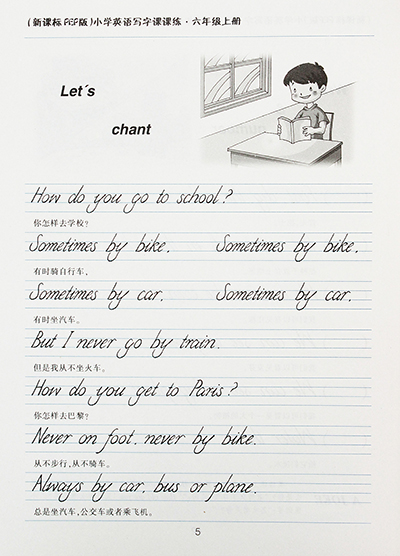 (新课标 PEP版)小学英语写字课课练·六年级上册
Let's
chant
How do you go to school?
你怎样去学校?
Sometimes by bike, Sometimes by bike,
有时骑自行车,
Sometimes by car, Sometimes by car,
有时坐汽车。
But I never go by train.
但是我从不坐火车。
How do you get to Paris?
你怎样去巴黎?
Never on foot, never by bike.
从不步行,从不骑车。
Always by car, bus or plane.
总是坐汽车,公交车或者乘飞机。
5